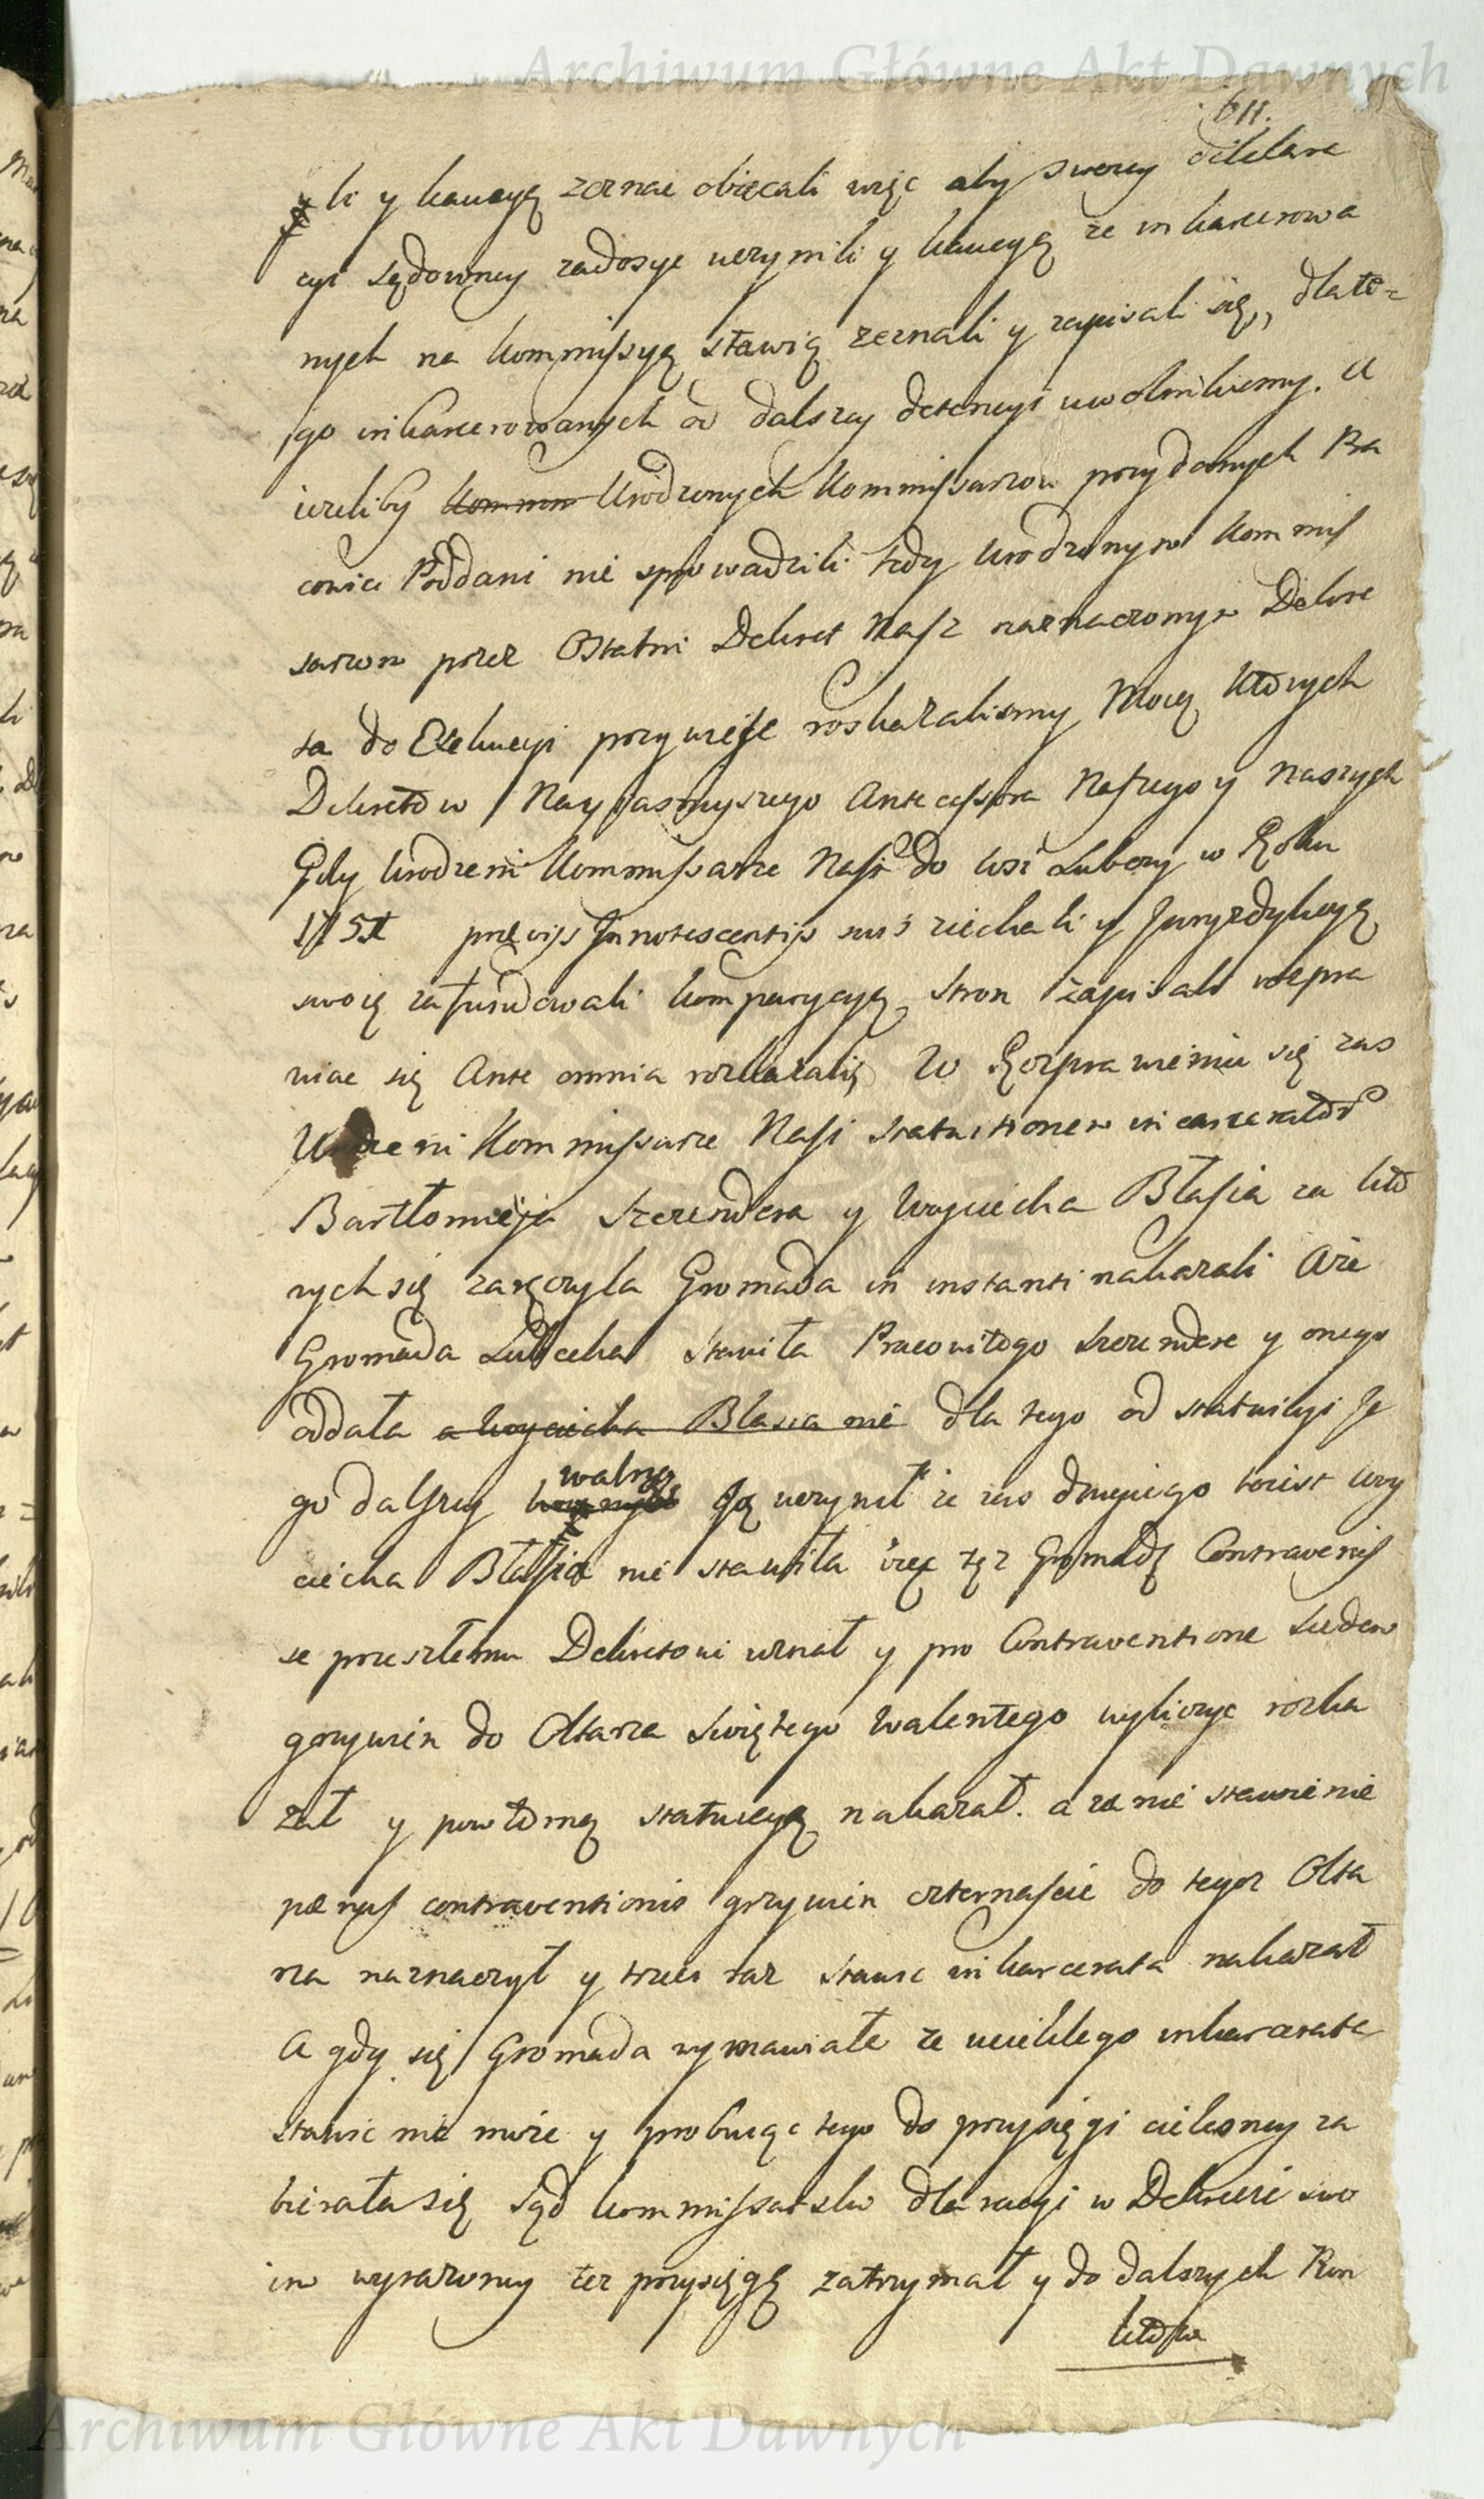 Archiwum Główne Akt Dawnych
611.
li y kaucyą zeznać obiecali więc aby swoiey deklara
cyi sądowney zadosyć uczynili y kaucyą że inkarcerowa
nych na kommissyą stawią zeznali y zapisali się, dlate=
go inkarcerowanych od dalszey detencyi uwolniliśmy. A
ieżeliby Urodzonych Kommissarzow przydanych Pra
cowici Poddani nie sprowadzili tedy Urodzonym Kommis
sarzom przez Ostatni Dekret Nasz naznaczonym Dekre
ta do Exekucyi przywieść roskazalismy Mocą których
Dekretów Nayjasnieyszego Antecessora Naszego y Naszych
Gdy Urodzeni Kommissarze Nasi do wsi Lubczy w Roku
1754 prævijs Innotescentijs suis ziechali y Juryzdykcyą
swoią zafundowali komparycyą stron zapisali rospra
wiać się Ante omnia rozkazali, W Rozprawieniu się zas
Urodzeni Kommissarze Nasi statuitionem incarceratorum
Bartłomieja Szerszdera y Woyciecha Błasia za któ
rych się zaręczyła Gromada in instanti nakazali Aże
Gromada Lubecka stawiła Pracowitego y onego
oddała a Woyciecha Blasia nie dla tego od statuicyi Je
go dalszey wolną Ją uczynił że zas drugiego to iest Woy
ciecha Błasia nie stawiła więc tęż Gromadę Contravenis
se przeszłemu Dekretowi uznał y pro Contraventione siedem
grzywien do Ołtarza Swiętego Walentego wyliczyć rozka
zał y powtórną statucyą nakazał. a za nie stawienie
pænas contraventionis grzywien czternaście do tegoż Ołta
rza naznaczył y trzeci raz stawić inkarcerata nakazał
A gdy się Gromada wymawiała że uciekłego inkarcerata
stawić nie może y probuiąc tego do przysięgi cielesney za
bierała się Sąd kommissarski dla racyi w Dekrecie swo
im wyrażoney też przysięgę zatrzymał y do dalszych Pun
któw
Archiwum Główne Akt Dawnych